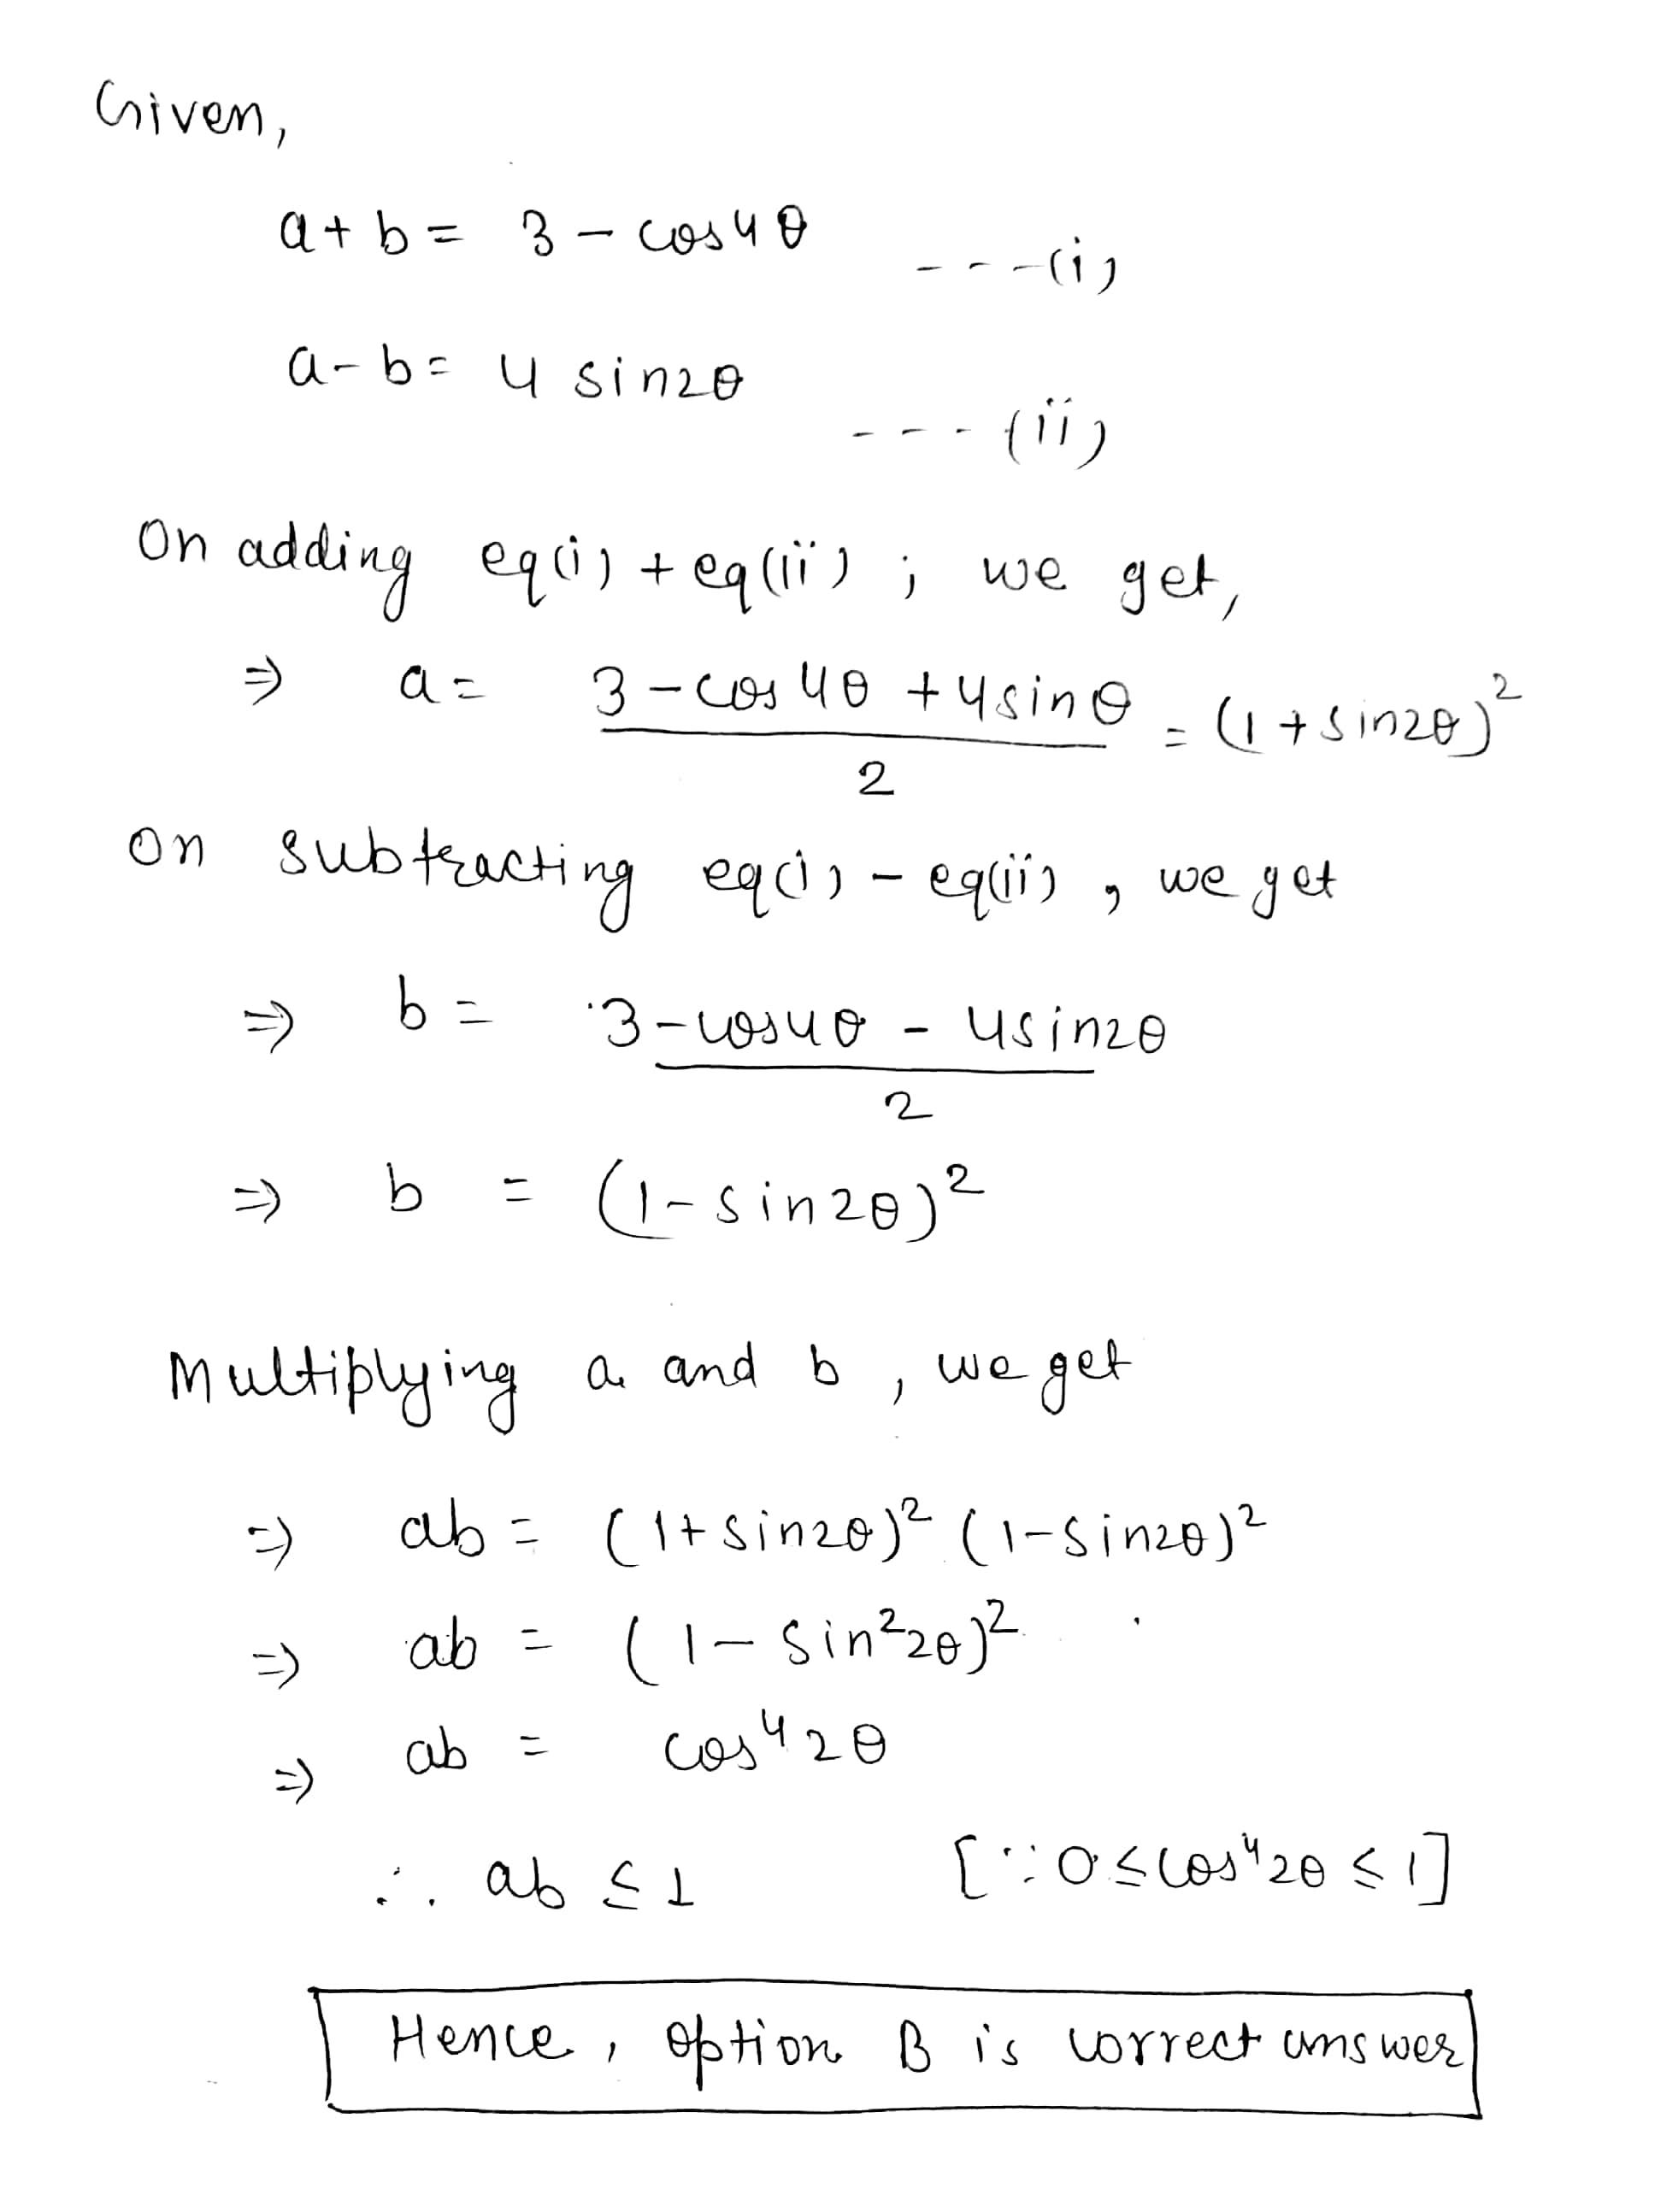 Given,
a+b = 3 - cos4θ ----(i)
a-b = 4 sin2θ ----(ii)
On adding eq(i) + eq(ii) ; we get,
⇒ a = (3 - cos4θ + 4sinθ)/2 = (1+sin2θ)²
On subtracting eq(i) - eq(ii) , we get
⇒ b = (3 - cos4θ - 4sin2θ)/2
⇒ b = (1-sin2θ)²
Multiplying a and b , we get
⇒ ab = (1+sin2θ)² (1-sin2θ)²
⇒ ab = (1 - sin²2θ)²
⇒ ab = cos⁴2θ
∴ ab ≤ 1 [∵ 0 ≤ cos⁴2θ ≤ 1]
Hence, option B is correct answer